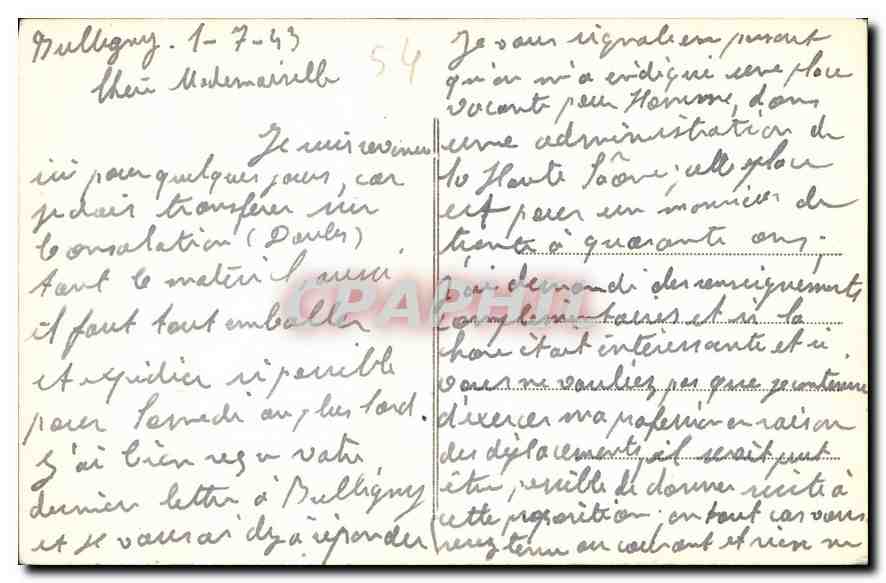 Bulligny. 1-7-43
54
Chère Mademoiselle
Je suis revenu
ici pour quelques jours, car
je dois transférer sur
Consolation (Doubs)
tout le matériel, aussi
il faut tout emballer
et expédier si possible
pour Samedi au plus tard.
J'ai bien reçu votre
dernière lettre à Bulligny
et je vous ai déjà répondu
Je vous signale en passant
qu'on m'a indiqué une place
vacante pour Homme, dans
une administration de
la Haute Saône; cette place
est pour un monsieur de
trente à quarante ans;
j'ai demandé des renseignements
complémentaires et si la
chose était intéressante et si
vous ne vouliez pas que je continue
d'exercer ma profession en raison
des déplacements, il serait peut
être possible de donner suite à
cette proposition. en tout cas vous
serez tenue au courant et rien ne
CPAPHIL